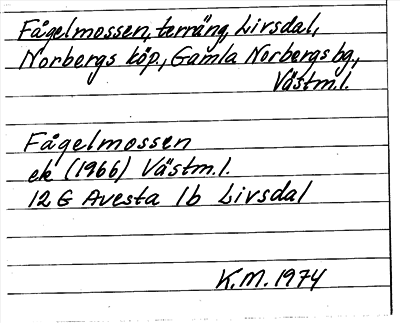 Fågelmossen, terräng, Livsdal,
Norbergs köp., Gamla Norbergs bg.,
Västm.l.
Fågelmossen
ek (1966) Västm.l.
12 G Avesta 1b Livsdal
K.M. 1974